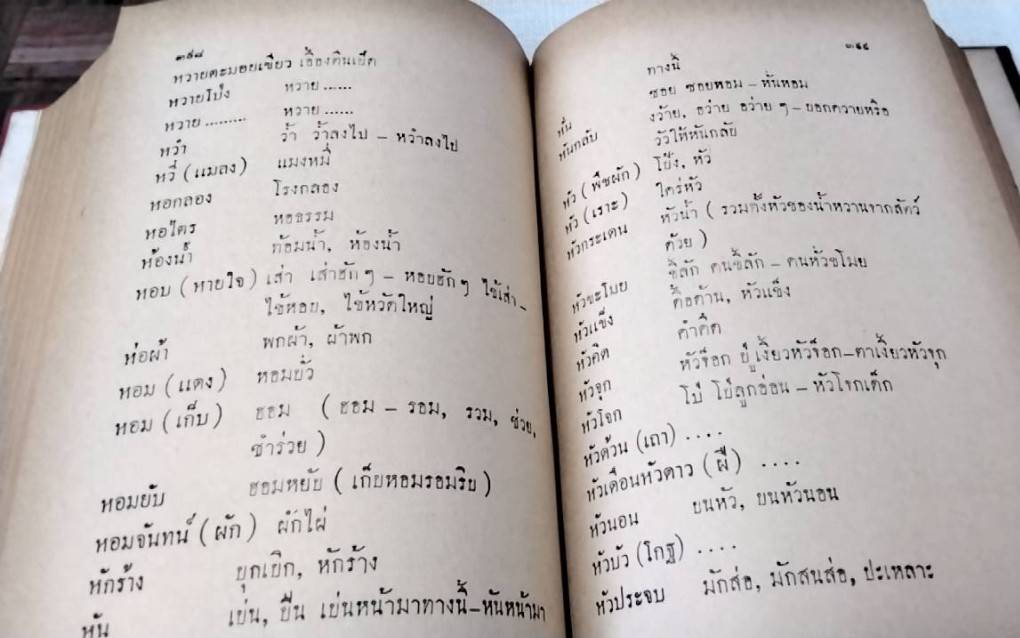 ๓๙๘
หวายตะมอยเขียว เอื้องดินเย็ด
หวายโป่ง หวาย ......
หวาย ......... หวาย ......
หวำ ว้ำ ว้ำลงไป - หวำลงไป
หวี่ (แมลง) แมงหมี่
หอกลอง โรงกลอง
หอไตร หอธรรม
ห้องน้ำ ต้อมน้ำ, ห้องน้ำ
หอบ (หายใจ) เส่า เส่าฮักๆ - หอบฮักๆ ไข้เส่า -
ไข้หอบ, ไข้หวัดใหญ่
ห่อผ้า พกผ้า, ผ้าพก
หอม (แดง) หอมบั่ว
หอม (เก็บ) ฮอม (ฮอม - รอม, รวม, ช่วย,
ชำร่วย)
หอมยับ ฮอมหยับ (เก็บหอมรอมริบ)
หอมจันทน์ (ผัก) ผักไผ่
หักร้าง ยุกเยิก, หักร้าง
หัน เย่น, ยืน เย่นหน้ามาทางนี้-หันหน้ามา
๓๙๙
ทางนี้
หั่น ซอย ซอยหอม - หั่นหอม
หันกลับ ง้วาย, อว่าย อว่าย ๆ - บอกควายหรือ
วัวให้หันกลับ
หัว (พืชผัก) โป้ง, หัว
หัว (เราะ) ใคร่หัว
หัวกระเดน หัวน้ำ (รวมทั้งหัวของน้ำหวานจากสัตว์
ด้วย)
หัวขะโมย ขี้ลัก คนขี้ลัก - คนหัวขโมย
หัวแข็ง ดื้อด้าน, หัวแข็ง
หัวคิด คำคิด
หัวจุก หัวจ๊อก
หัวโจก โป่ โป่ลูกอ่อน - หัวโจกเด็ก
หัวด้วน (เถา) ....
หัวเดือนหัวดาว (ผี) ....
หัวนอน บนหัว, บนหัวนอน
หัวบัว (โกฐ) ....
หัวประจบ มักส่อ, มักสนส่อ, ปะเหลาะ